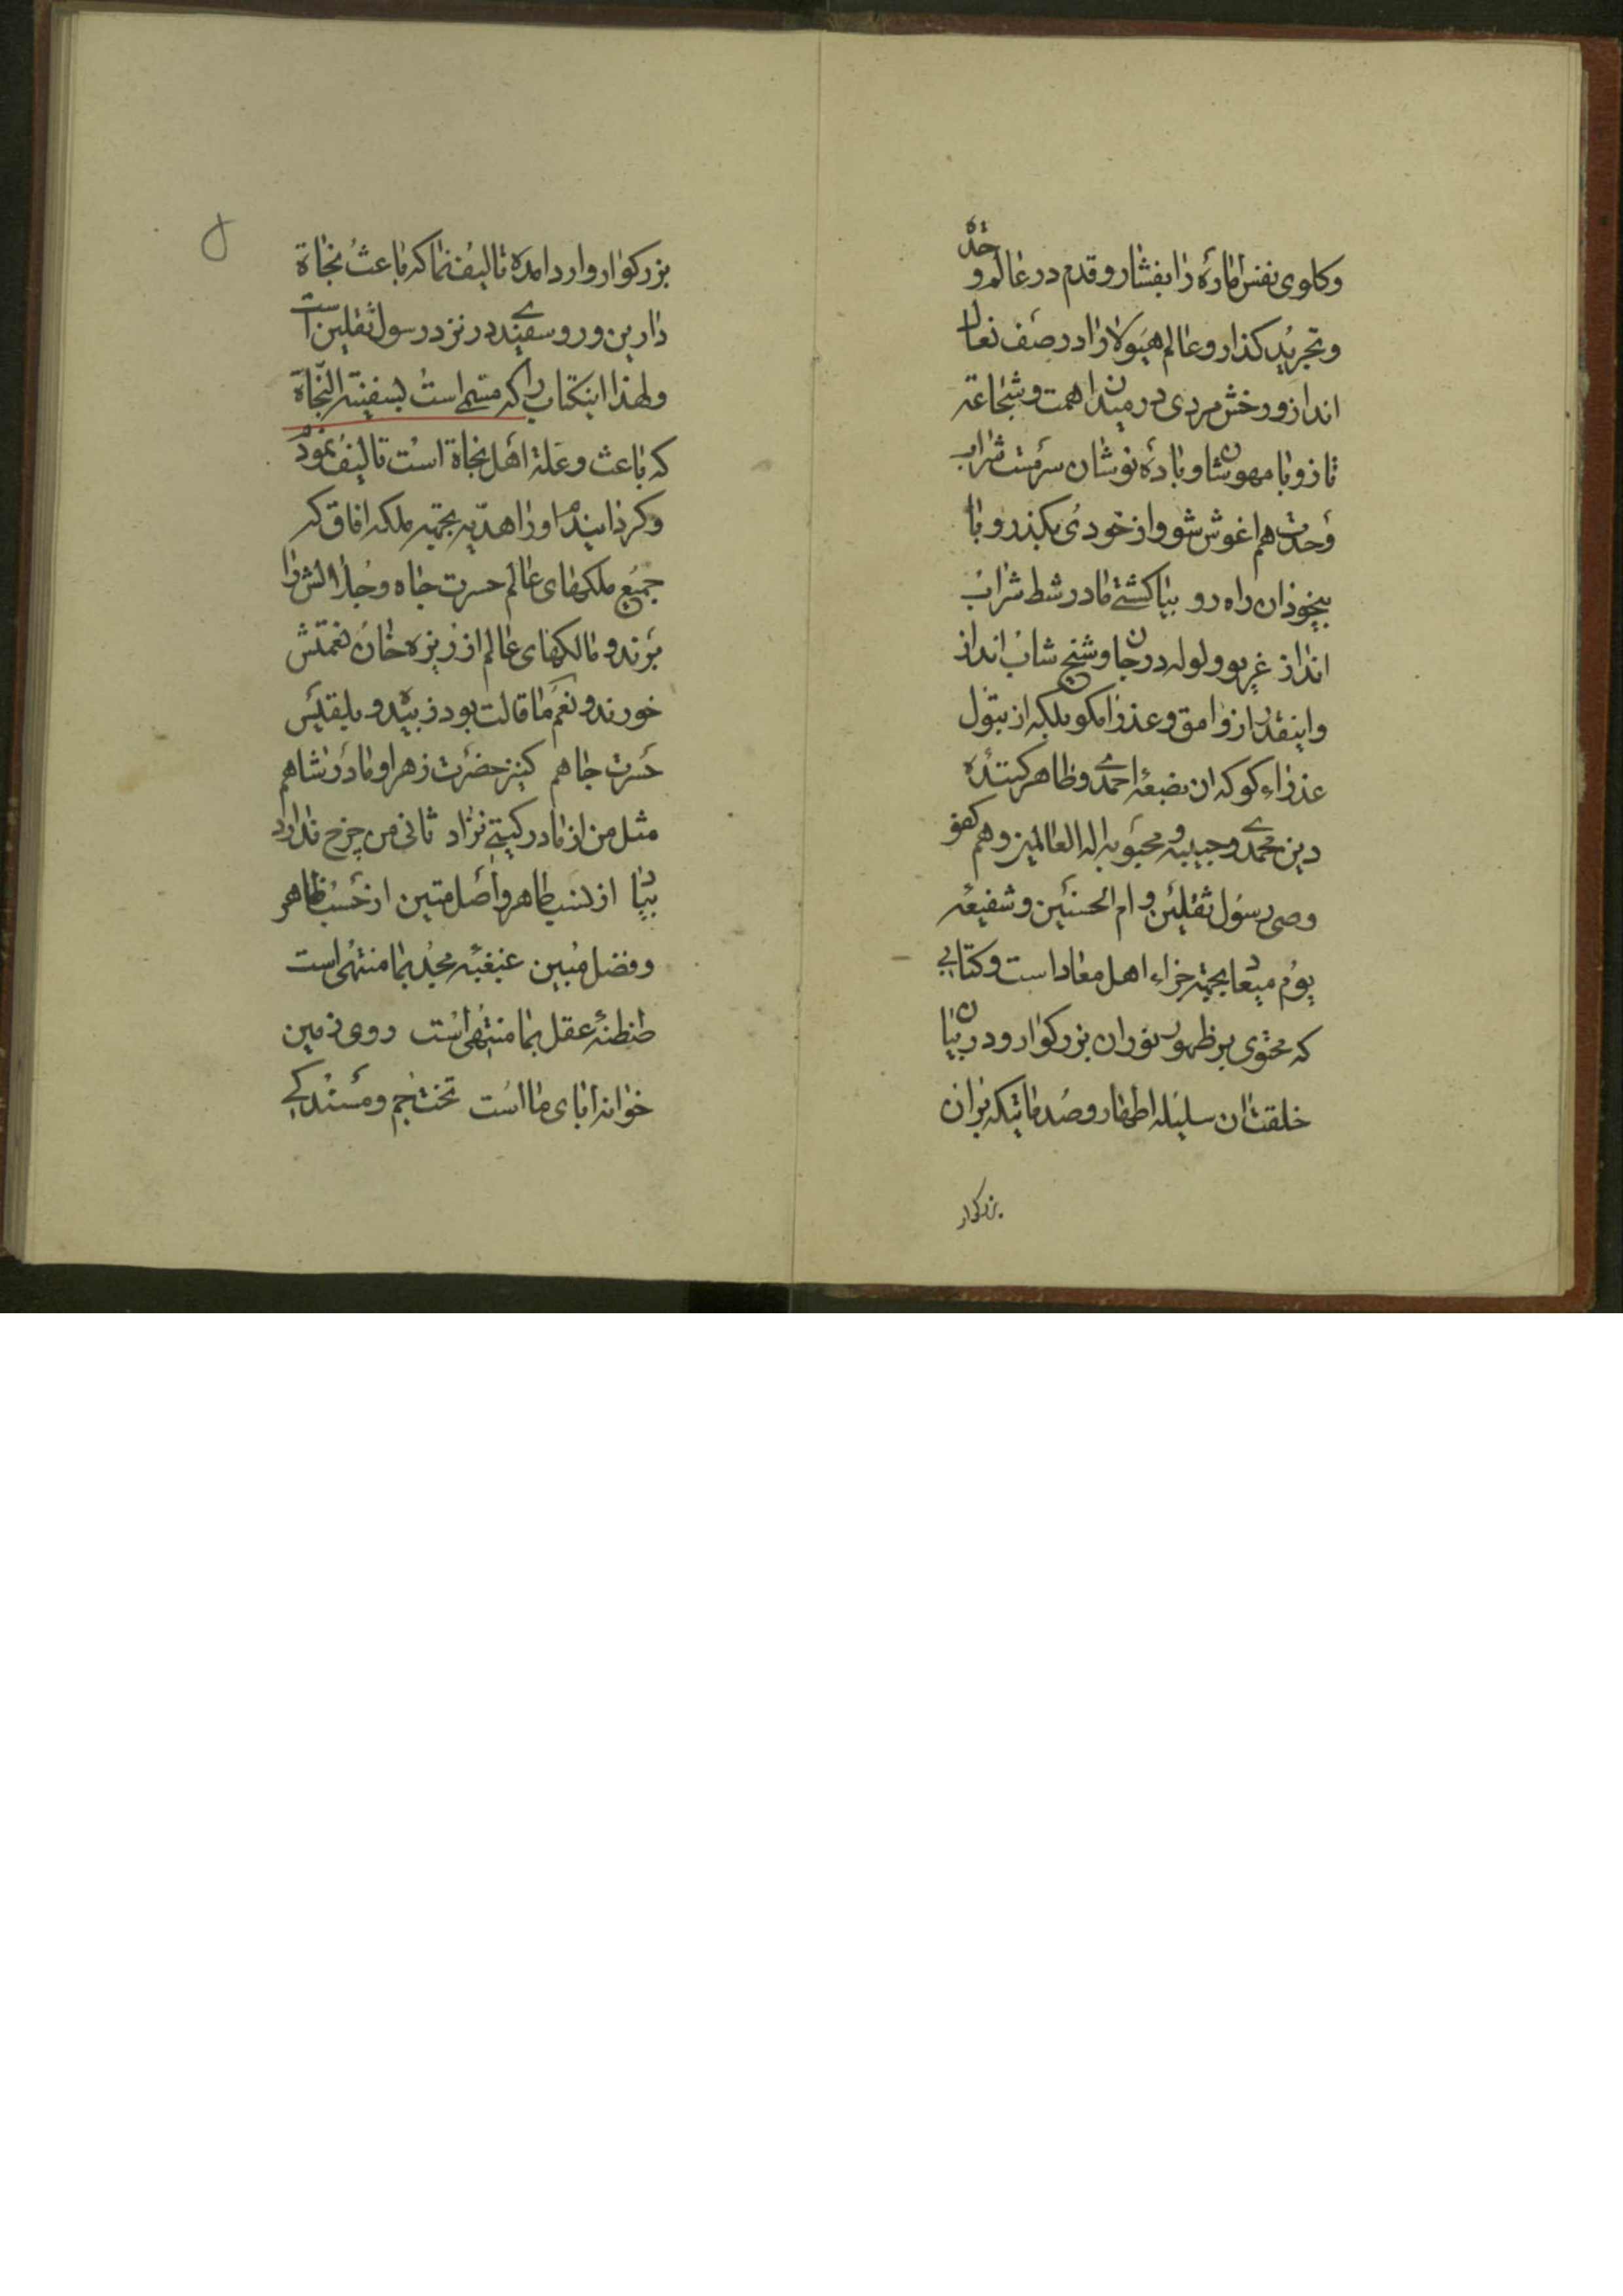 وکلوی نفس امارهٔ را بفشار و قدم در عالم وحدة
و تجرید کذار و عالم هیولا را در صف نعال
انداز و رخش مردی در میدان همت و شجاعة
تاز و با مهوشان و باده نوشان سرمست شراب
وحدت هم اغوش شو و از خودی بکذر و با
بیخودان راه رو بیا کشتی ما در شط شراب
انداز غریو و ولوله در جان و شیخ شاب انداز
و اینقدر از وامق و عذرا مکو بلکه از بتول
عذراء کو که ان بضعهٔ احمدی و ظاهر کنندهٔ
دین محمدی و حبیبه و محبوبه اله العالمین و هم کفو
وصی رسول ثقلین و ام الحسنین و شفیعه
یوم میعاد بجهة جزاء اهل معاد است و کتابی
که محتوی بر ظهور نور ان بزرکوار و در بیان
خلقت ان سلیله اطهار و صدماتیکه بران
بزرکوار
بزرکوار وارد امده تالیف نما که باعث نجاة
دارین و رو سفیدی در نزد رسول ثقلین است
و لهذا اینکتاب را که مسمی است بسفینة النجاة
که باعث و علة اهل نجاة است تالیف نمود
و کردانید او را هدیه بجهة ملکه افاق که
جمیع ملکهای عالم حسرت جاه و جلالش را
برند و مالکهای عالم از ریزه خان نعمتش
خورند و نعم ما قالت بود زبیده و بلقیس
حسرت جاهم کنیز حضرت زهرا و مادر شاهم
مثل من از مادر کیتی نزاد ثانی من چرخ ندارد
بیاد از نسب طاهر و اصل متین از حسب ظاهر
و فضل مبین مجد بما منتهی است
طنطنهٔ عقل بما منتهی است روی زمین
خوانه ابای ما است تخت جم و مسند کی